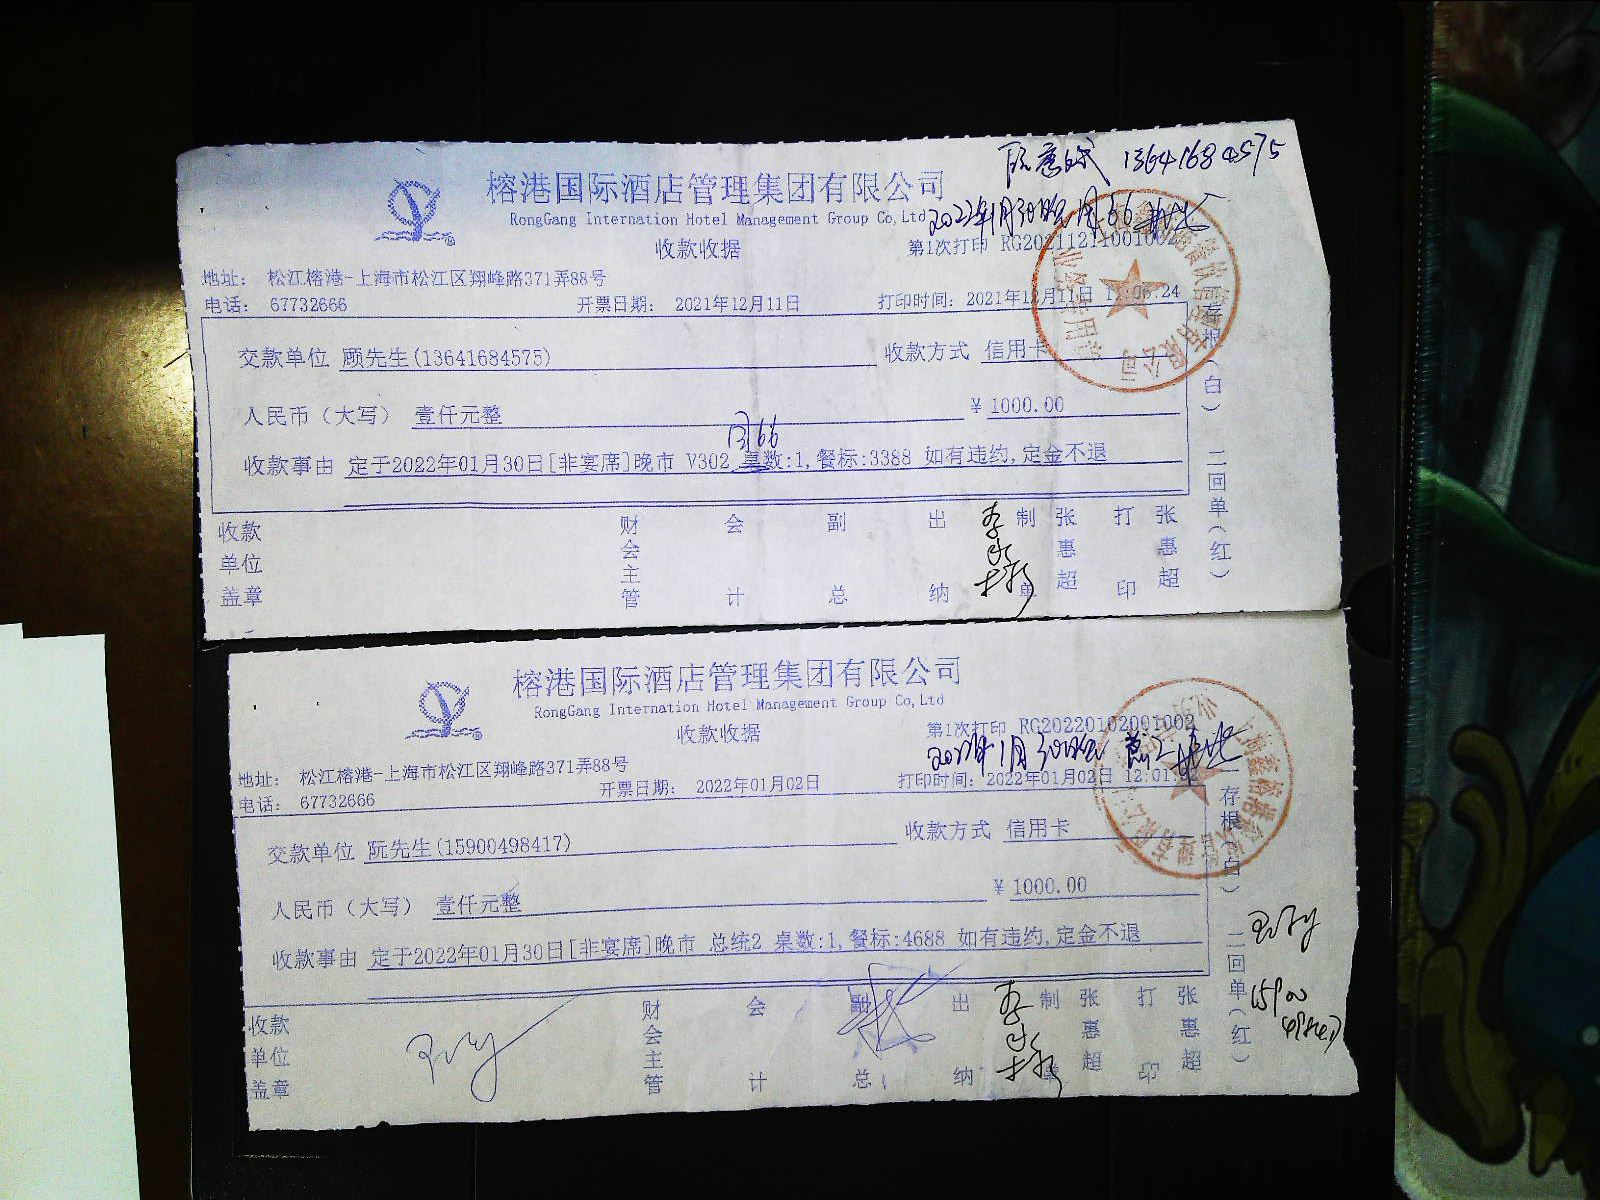 13641684575
榕港国际酒店管理集团有限公司
RongGang Internation Hotel Management Group Co,Ltd
2022年1月30晚
收款收据
第1次打印
地址: 松江榕港-上海市松江区翔峰路371弄88号
电话: 67732666 开票日期: 2021年12月11日 打印时间: 2021年12月11日
交款单位 顾先生(13641684575) 收款方式 信用卡
人民币(大写) 壹仟元整 ¥ 1000.00
收款事由 定于2022年01月30日[非宴席]晚市 V302 桌数:1,餐标:3388 如有违约,定金不退
收款单位盖章 财会主管 会计 副总 出纳 制单 张惠超 打印 张惠超
存根(白) 二回单(红)
榕港国际酒店管理集团有限公司
RongGang Internation Hotel Management Group Co,Ltd
收款收据
第1次打印 RG20220102001002
2022年1月30晚
地址: 松江榕港-上海市松江区翔峰路371弄88号
电话: 67732666 开票日期: 2022年01月02日 打印时间: 2022年01月02日
交款单位 阮先生(15900498417) 收款方式 信用卡
人民币(大写) 壹仟元整 ¥ 1000.00
收款事由 定于2022年01月30日[非宴席]晚市 总统2 桌数:1,餐标:4688 如有违约,定金不退
收款单位盖章 财会主管 会计 副总 出纳 制单 张惠超 打印 张惠超
存根(白) 二回单(红)